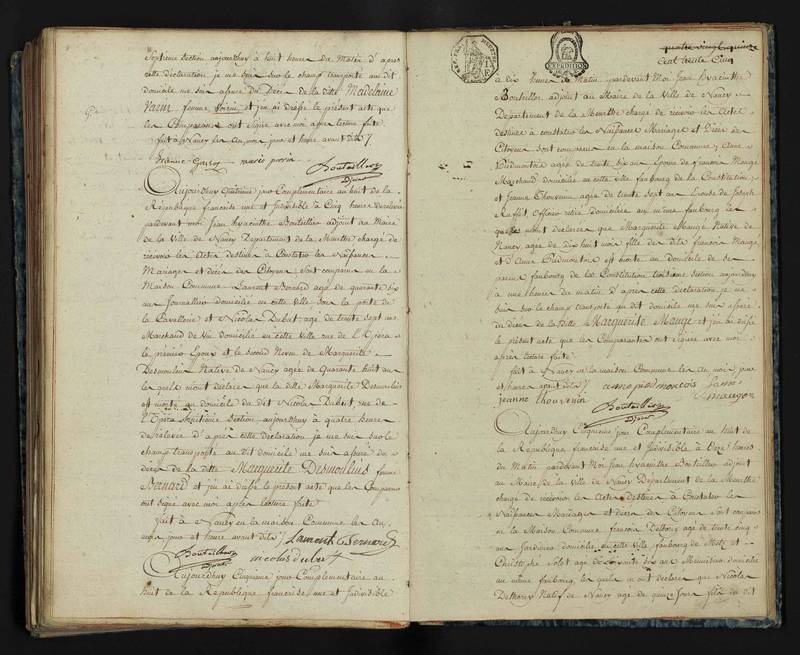 Septieme section aujourdhuy a huit heures du Matin d'apres
cette declaration je me suis sur le champ transporté au dit
domicile me suis assuré du Deces de la ditte Madelaine
femme et j'ai dressé le présent acte que
les Comparans ont Signé avec moi apres lecture faite
fait à Nancy les An, mois jour et heure avant dits
Jeanne marie
Bouteiller
Adjoint
Aujourdhuy jour Complementaire an huit de la
République française une et Indivisible à Cinq heures de relevée
pardevant moi Jean hyacinthe Bouteiller adjoint au Maire
de la Ville de Nancy Departement de la Meurthe chargé de
recevoir les Actes destinés à Constater les Naissances
Mariages et décès des Citoyens Sont comparus en la
Maison Commune Laurent agé de quarante six
ans Journallier domicilié en cette Ville sous la porte de
la Cavallerie et Nicolas Dubut agé de trente sept ans
Marchand de Vin domicilié en cette Ville rue de l'Opera
le premier Epoux et le second Neveu de Marguerite
Desmoulins Native de Nancy agée de Quarante huit ans
lesquels m'ont déclaré que la ditte Marguerite Desmoulins
est morte au domicile du dit Nicolas Dubut rue de
l'Opera Septieme Section aujourdhuy à quatre heures
de relevée d'apres cette declaration je me suis sur le
champ transporté au dit domicile me suis assuré du
décès de la ditte Marguerite Desmoulins femme
Bernard et j'ai dressé le present acte que les Comparans
ont Signé avec moi apres lecture faite
fait à Nancy en la maison Commune les An,
mois jour et heure avant dits Laurent Bernard
Bouteiller nicolas dubut
Adjoint
Aujourdhuy Cinquieme jour Complementaire an
huit de la Republique française une et Indivisible
quatre vingt quinze
Cent trente Cinq
EXPEDITION
à dix heures du Matin pardevant Moi Jean hyacinthe
Bouteiller adjoint au Maire de la Ville de Nancy
Departement de la Meurthe chargé de recevoir les Actes
destinés a constater les Naissances Mariages et Décès des
Citoyens sont comparus en la maison Commune, Anne
Piedmontois agée de trente six ans Epouse de françois Mauge
Marchand domicilié en cette ville faubourg de la Constitution,
et Jeanne Thouvenin agée de trente sept ans Epouse de Joseph
domiciliée au même faubourg les
quelles m'ont declaré que Marguerite Mauge Native de
Nancy, agée de dix huit mois fille de dits françois Mauge
et d'Anne Piedmontois est morte au domicile de ses
pere faubourg de la Constitution troisieme Section aujourdhuy
à une heure du matin d'apres cette declaration je me
suis sur le champ transporté au dit domicile me suis assuré
du décès de la ditte Marguerite Mauge et j'ai dressé
le présent acte que les Comparantes ont Signé avec moi
apres lecture faite
fait à Nancy en la maison Commune les An, mois jour
et heure avant dits anne piedmontois
jeanne thouvenin
Bouteiller
Adjoint
Aujourdhuy Cinquieme jour Complementaire an huit de
la République française une et Indivisible à Onze heures
du Matin pardevant Moi Jean hyacinthe Bouteiller adjoint
au Maire de la Ville de Nancy Departement de la Meurthe
chargé de recevoir les Actes destinés à Constater les
Naissances Mariages et décès des Citoyens Sont comparus
en la Maison Commune françois agé de trente cinq
ans Jardinier domicilié en cette ville faubourg de Metz et
Christophe agé de soixante six ans domicilié
au même faubourg, les quels m'ont declaré que Nicolas
Natif de Nancy agé de quinze jours fils du dit